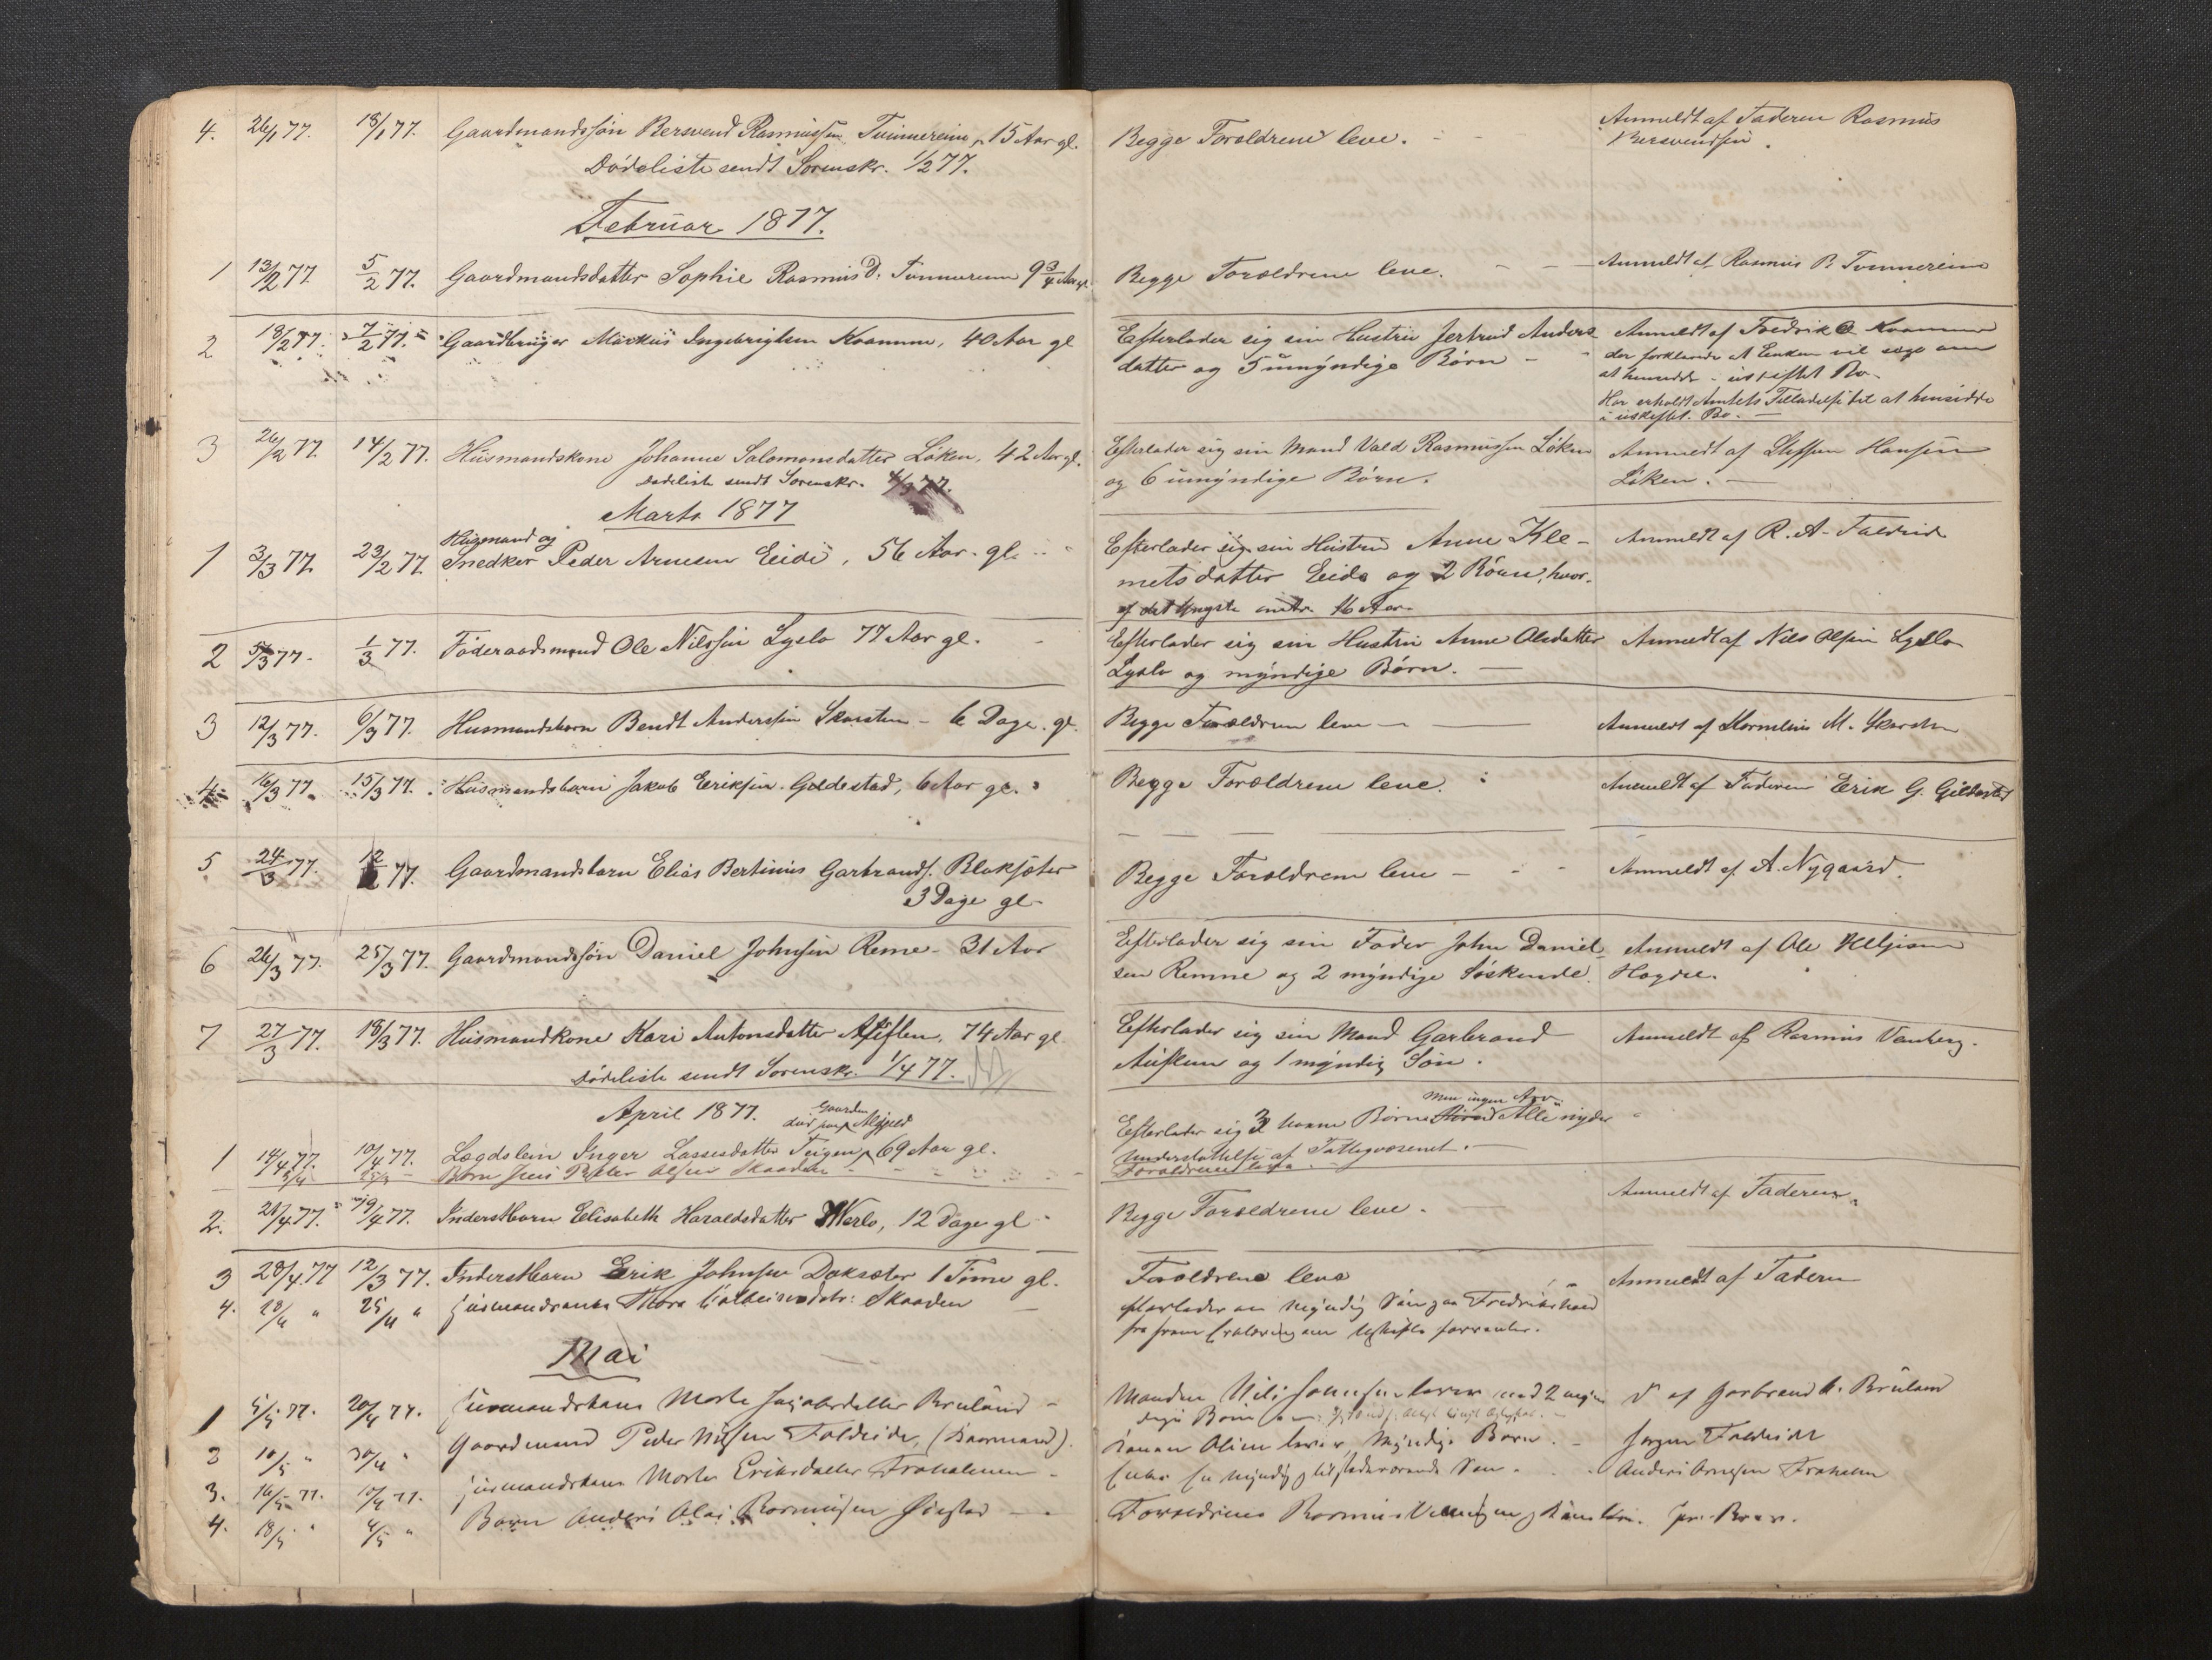 4. 26/1 77. 18/1 77. Gaardmandssøn Bersvend Rasmussen Tunnereim, 15 Aar gl. Begge Foroldrene leve. Anmeldt af Faderen Rasmus
Bersvendsen.
Dødeliste sendt Sorenskr. 1/2 77.
Februar 1877.
1 13/2 77 5/2 77. Gaardmandsdatter Sophie Rasmus D. 9 3/4 Aar gl. Begge Foroldrene leve. Anmeldt af Rasmus B.
2 18/2 77. 7/2 77. Gaardbruger Markus Ingebrigtsen Kvamme, 40 Aar gl Efterlader sig sin Hustru Jertrud Anders Anmeldt af Fredrik O. Kvamme
datter og 5 umyndige Børn der forklarede at Enken vil søge om
at hensidde i uskiftet Bo.
Har erholdt Amtets Tilladelse til at hensidde
i uskiftet Bo.
3 26/2 77. 14/2 77. Husmandskone Johanne Salomonsdatter Løken, 42 Aar gl. Efterlader sig sin Mand Vald Rasmussen Løken Anmeldt af Steffen Hansen
Dødeliste sendt Sorenskr. 4/3 77. og 6 umyndige Børn. Løken.
Marts 1877
Husmand og
1 3/3 77. 23/2 77. Snedker Peder Arnesen Eide, 56 Aar gl. Efterlader sig sin Hustru Anne Kle- Anmeldt af R. A. Faldeide
metsdatter Eide og 2 Børn, hvor-
af det yngste 16 Aar.
2 5/3 77. 1/3 77. Føderaadsmand Ole Nilssen Lyslo 77 Aar gl. Efterlader sig sin Hustru Anne Olsdatter Anmeldt af Nils Olsen Lyslo
Lyslo og myndige Børn.
3 12/3 77. 6/3 77. Husmandsbarn Bendt Anderssen Skarsten - 6 Dage gl. Begge Foroldrene leve Anmeldt af Kornelius M. Skarsten
4 16/3 77. 15/3 77. Husmandsbarn Jakob Eriksen Gildestad, 6 Aar gl. Begge Foroldrene leve. Anmeldt af Faderen Erik G. Gildestad
5 24/3 77. 77. Gaardmandsbarn Elias Bertinius Garbrands. Blaksæter Begge Foroldrene leve Anmeldt af A. Nygaard.
3 Dage gl.
6 26/3 77. 25/3 77. Gaardmandssøn Daniel Johnsen Reme - 31 Aar Efterlader sig sin Fader John Daniel- Anmeldt af Ole Helgesen
sen Remme og 2 myndige Søskende.
7 27/3 77. 18/3 77. Husmandkone Kari Antonsdatter 74 Aar gl. Efterlader sig sin Mand Garbrand Anmeldt af Rasmus Vanberg.
og 1 myndig Søn.
Dødeliste sendt Sorenskr. 1/4 77.
April 1877.
Gaarden
død paa
men ingen Arv
1 14/4 77. 10/4 77. Lægdslem Inger Lassesdatter Teigen, 69 Aar gl. Efterlader sig 3 Børn Alle nyder
Understøttelse af Fattigvæsenet.
Barn Jens Peter Olsen Skaaden Foroldrene leve
2. 21/4 77. 19/4 77. Inderstbarn Elisabeth Haraldsdatter 12 Dage gl Begge Foroldrene leve. Anmeldt af Faderen
3 28/4 77 12/3 77. Inderstbarn Erik Johnsen Daksæter 1 Time gl. Foroldrene leve Anmeldt af Faderen
4. 28/4 " 25/4 " Husmandsenke Thora Skaaden efterlader en myndig Søn paa Fredrikshald
Mai
1 5/5 77. 20/4 77. Husmandskone Marte Jakobsdatter Bruland Manden Nils lever med 2 af Garbrand Bruland
Børn
2 10/5 " 30/4 " Gaardmand Peder Nilsen Faldeide, Konen Oline lever, Myndige Børn. Jørgen Faldeide
3. 16/5 77. 10/4 77. Husmandskone Marte Eriksdatter Froholmen myndig tilstedeværende Søn. Anders Arnesen Froholm
4. 18/5 " 4/5 " Barn Anders Olai Rasmussen Foroldrene Rasmus